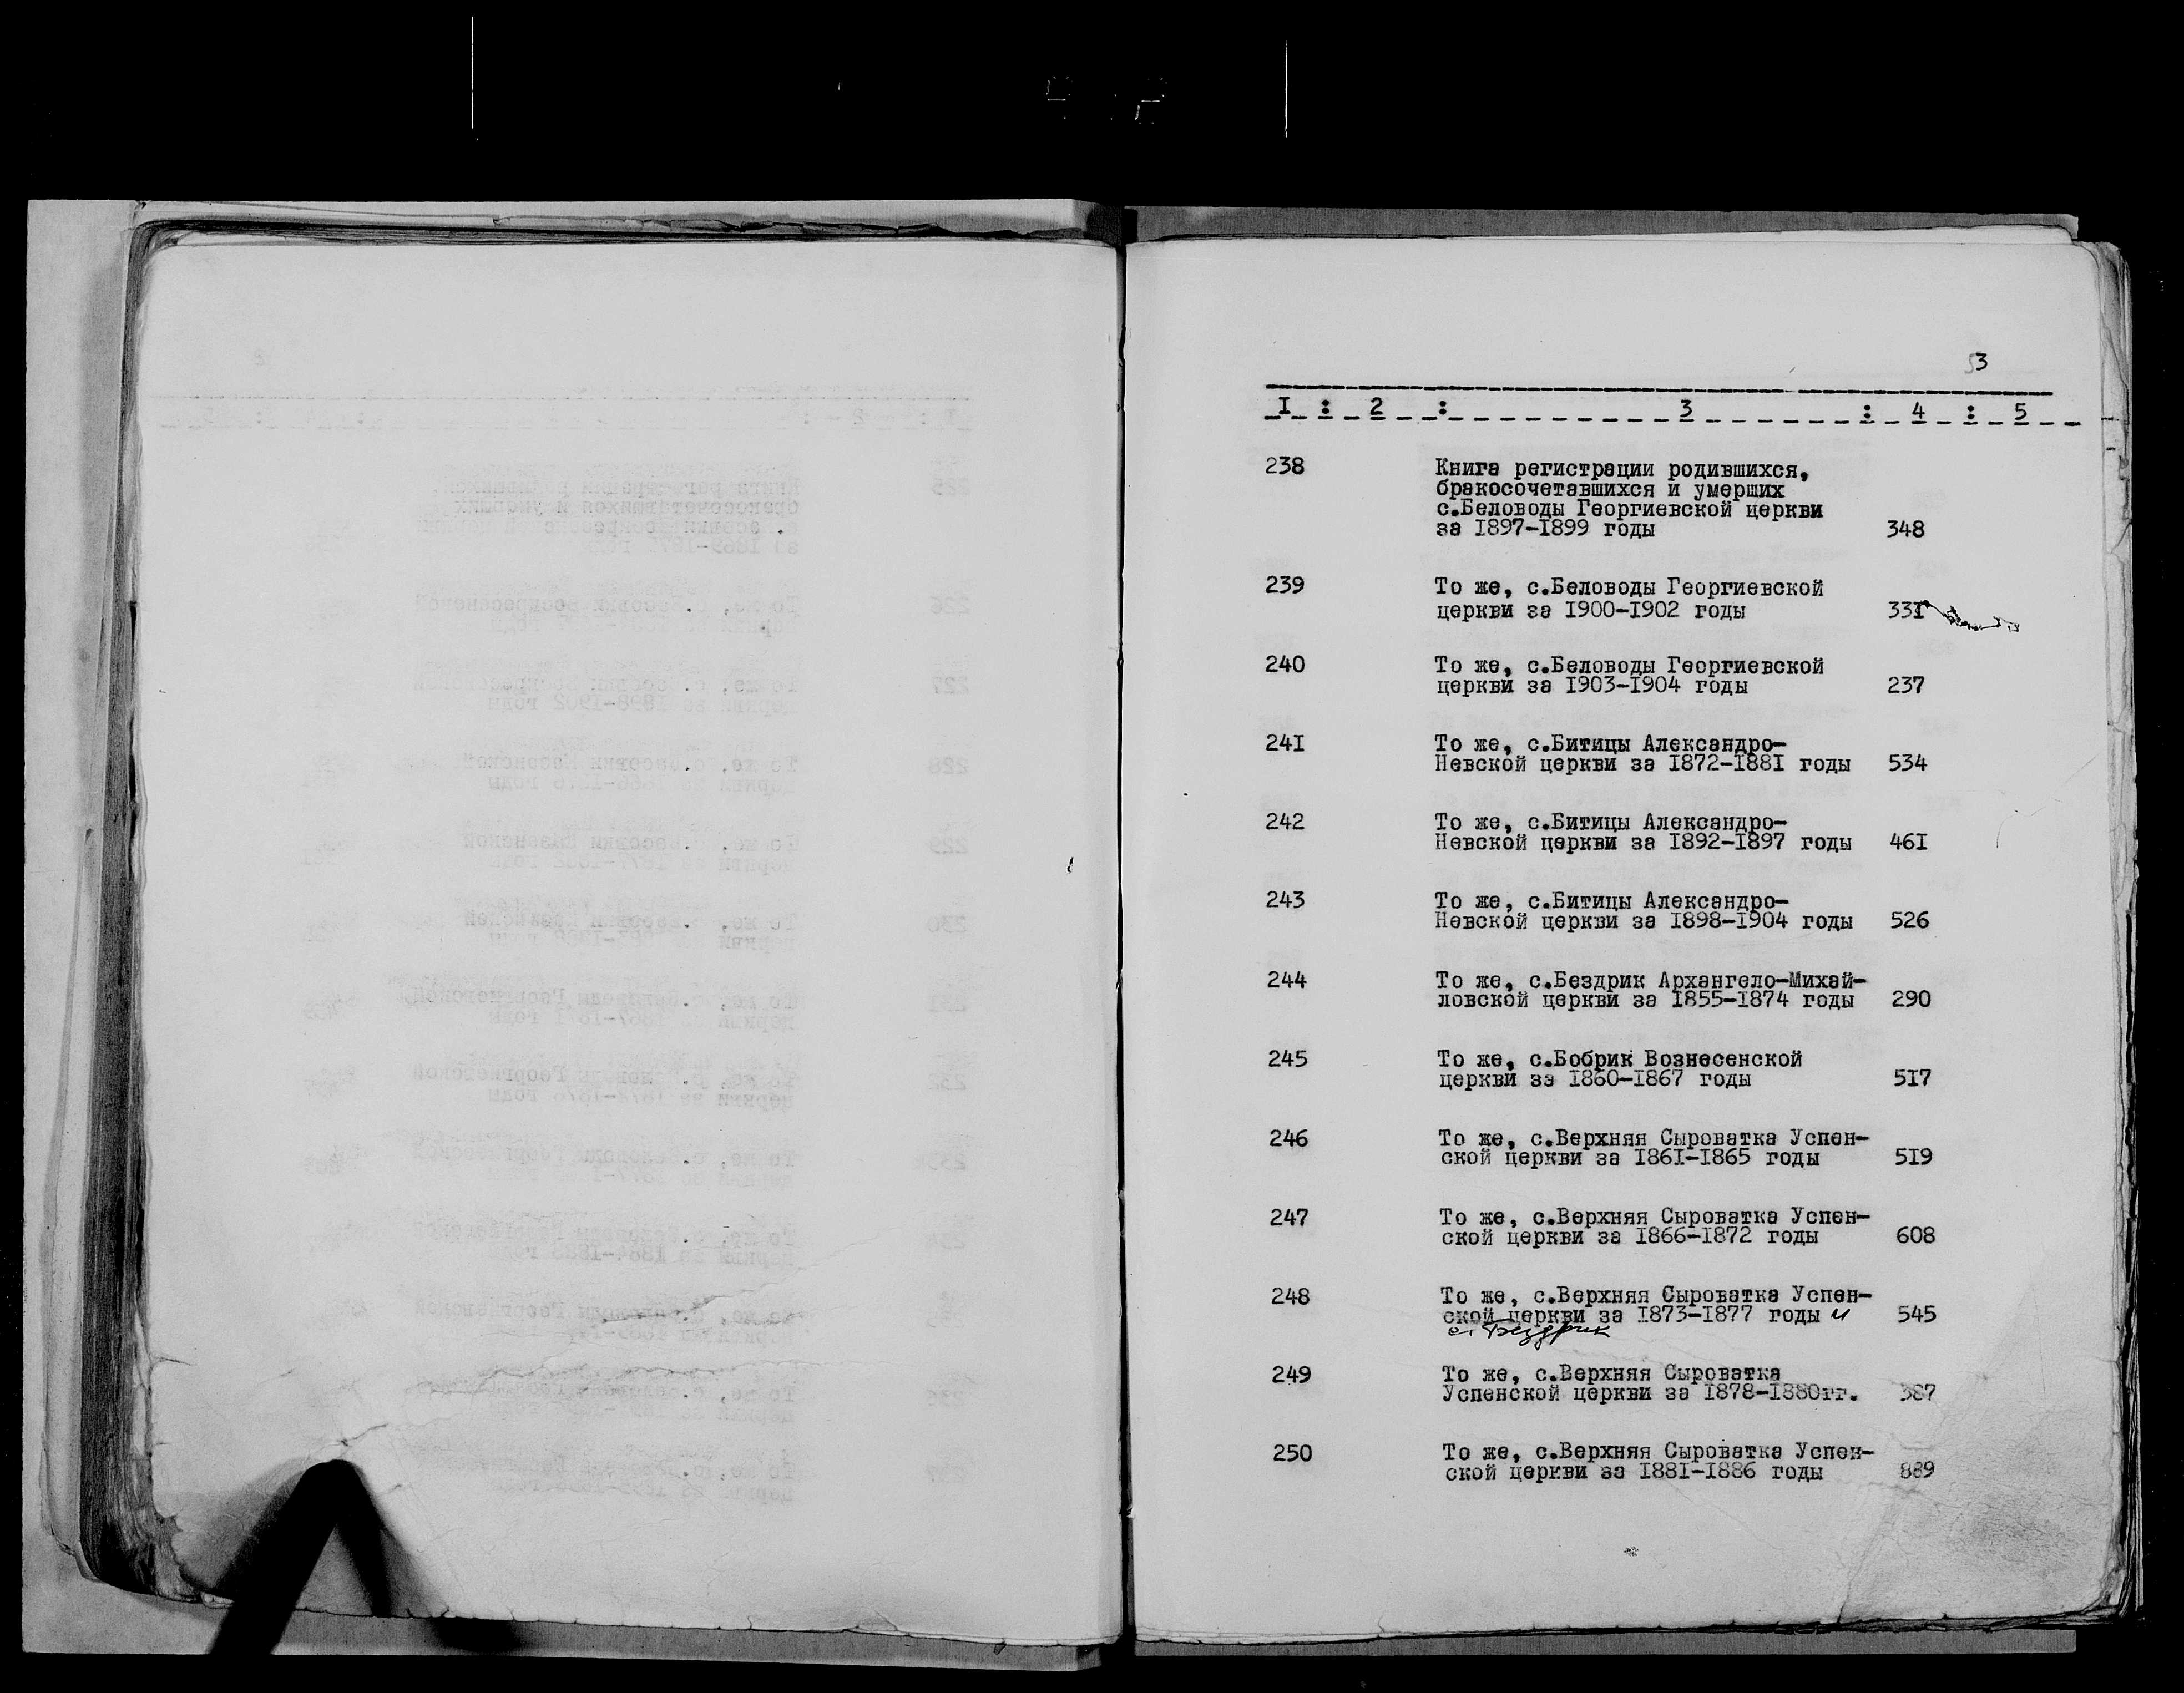 53
I : 2 : 3 : 4 : 5
238 Книга регистрации родившихся,
бракосочетавшихся и умерших
с.Беловоды Георгиевской церкви
за 1897-1899 годы 348
239 То же, с.Беловоды Георгиевской
церкви за 1900-1902 годы 331
240 То же, с.Беловоды Георгиевской
церкви за 1903-1904 годы 237
241 То же, с.Битицы Александро-
Невской церкви за 1872-1881 годы 534
242 То же, с.Битицы Александро-
Невской церкви за 1892-1897 годы 461
243 То же, с.Битицы Александро-
Невской церкви за 1898-1904 годы 526
244 То же, с.Бездрик Архангело-Михай-
ловской церкви за 1855-1874 годы 290
245 То же, с.Бобрик Вознесенской
церкви за 1860-1867 годы 517
246 То же, с.Верхняя Сыроватка Успен-
ской церкви за 1861-1865 годы 519
247 То же, с.Верхняя Сыроватка Успен-
ской церкви за 1866-1872 годы 608
248 То же, с.Верхняя Сыроватка Успен-
ской церкви за 1873-1877 годы и 545
с. Бездрик
249 То же, с.Верхняя Сыроватка
Успенской церкви за 1878-1880гг. 387
250 То же, с.Верхняя Сыроватка Успен-
ской церкви за 1881-1886 годы 889